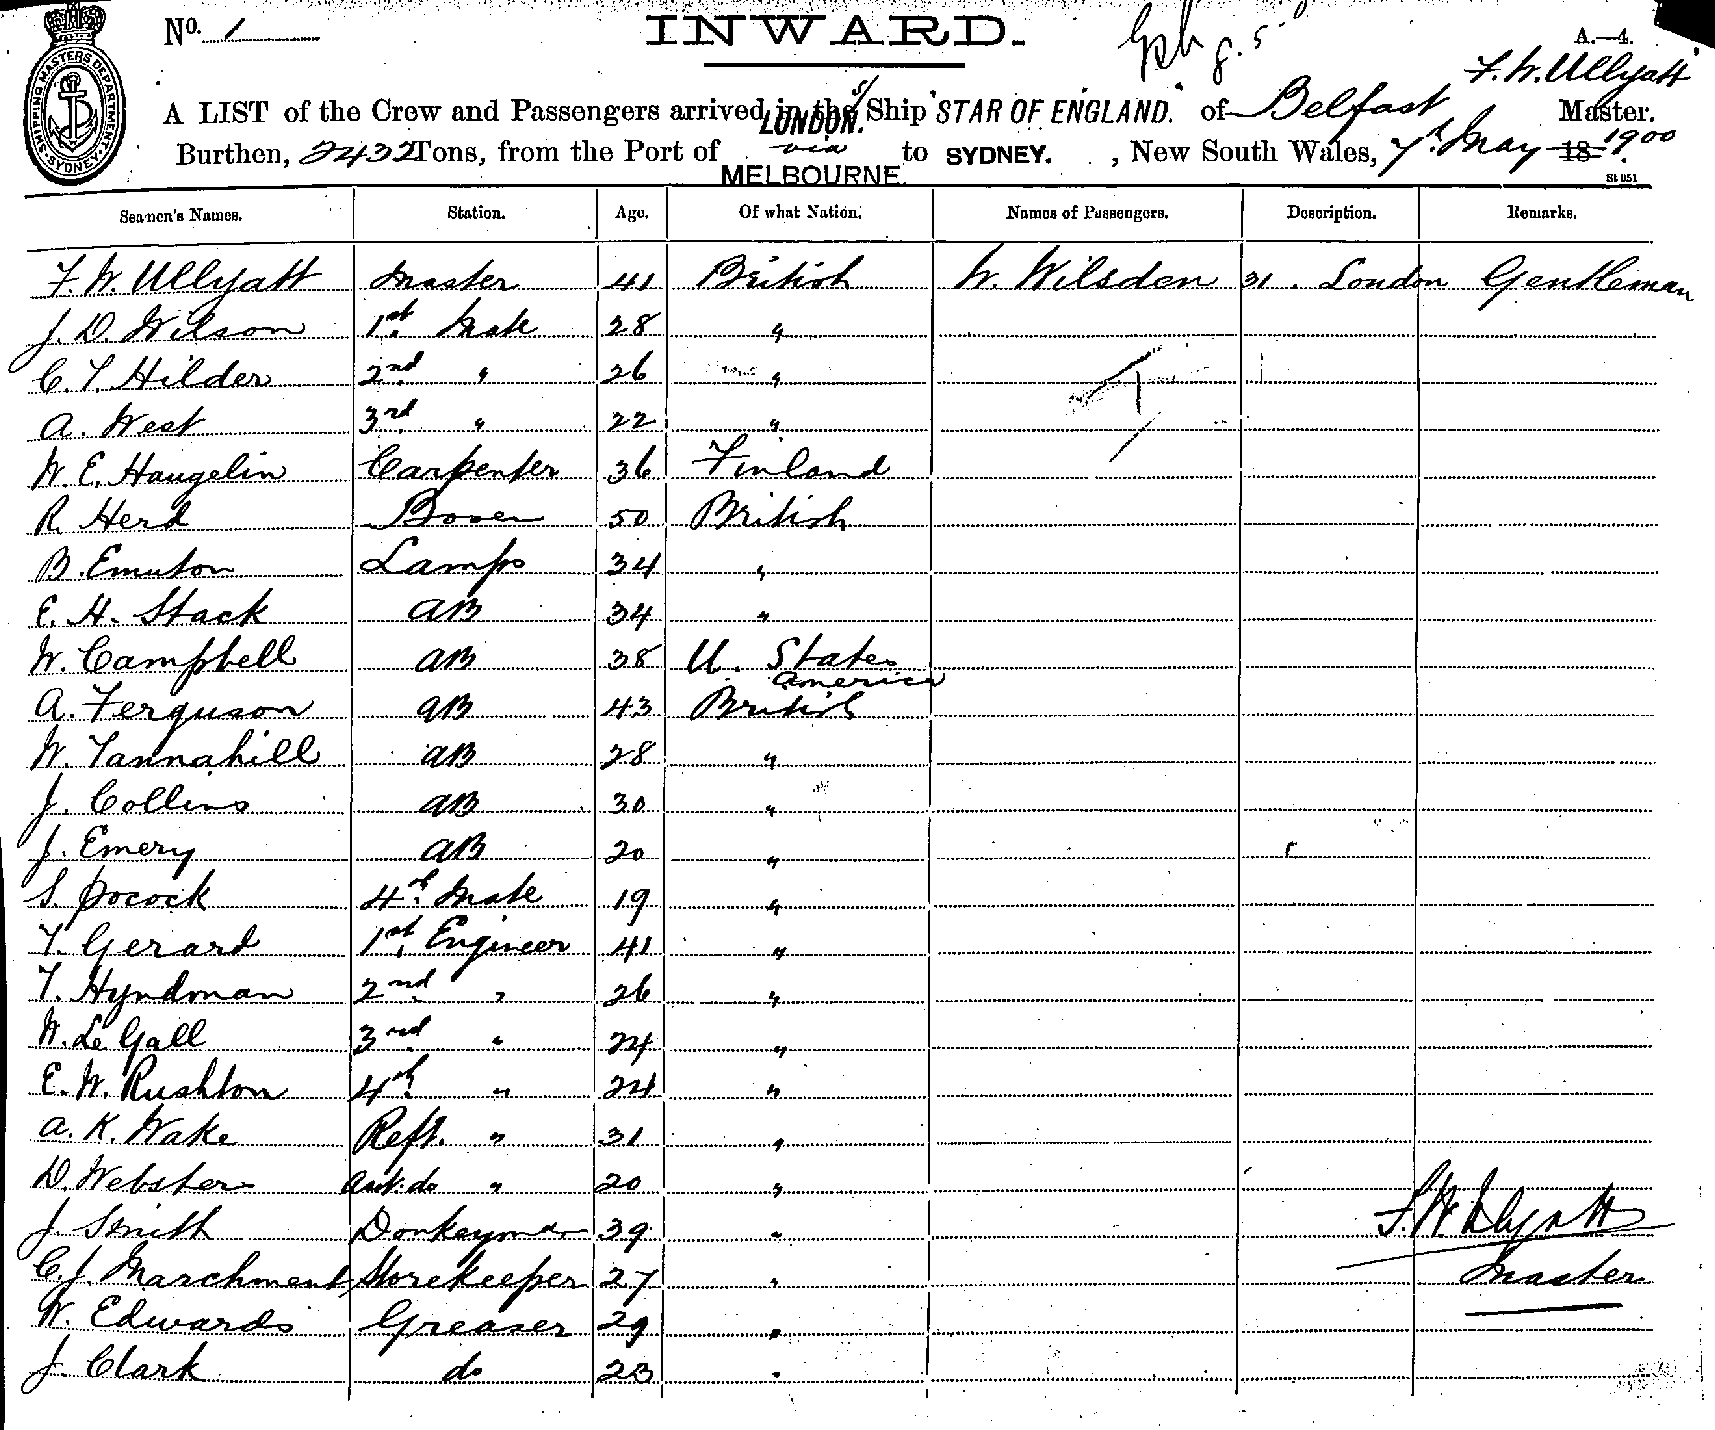 No. 1
INWARD.
A.—4.
F. W. Ullyatt
A LIST of the Crew and Passengers arrived in the S/ Ship "STAR OF ENGLAND." of Belfast Master.
Burthen, 2432 Tons, from the Port of LONDON. via MELBOURNE. to SYDNEY. , New South Wales, 7th May 18 1900
St 051
SHIPPING MASTERS DEPARTMENT SYDNEY
Seamen's Names. Station. Age. Of what Nation. Names of Passengers. Description. Remarks.
F. W. Ullyatt Master 41 British W. Wilsden 31 . London Gentleman
J. D. Wilson 1st Mate 28 "
C. T. Hilder 2nd " 26 "
A. West 3rd " 22 "
W. E. Haugelin Carpenter 36 Finland
R. Herd Bosen 50 British
B. Emuton Lamps 34 "
E. H. Stack AB 34 "
W. Campbell AB 38 U. States America
A. Ferguson AB 43 British
W. Tannahill AB 28 "
J. Collins AB 30 "
J. Emery AB 20 "
S. Pocock 4th Mate 19 "
T. Gerard 1st Engineer 41 "
T. Hyndman 2nd " 26 "
W. Le Gall 3rd " 24 "
E. W. Rushton 4th " 24 "
A. K. Wake Refr. " 31 "
D. Webster Ast. do " 20 "
J. Smith Donkeyman 39 "
F. W. Ullyatt
C. J. Marchment Storekeeper 27 "
Master
W. Edwards Greaser 29 "
J. Clark do 23 "